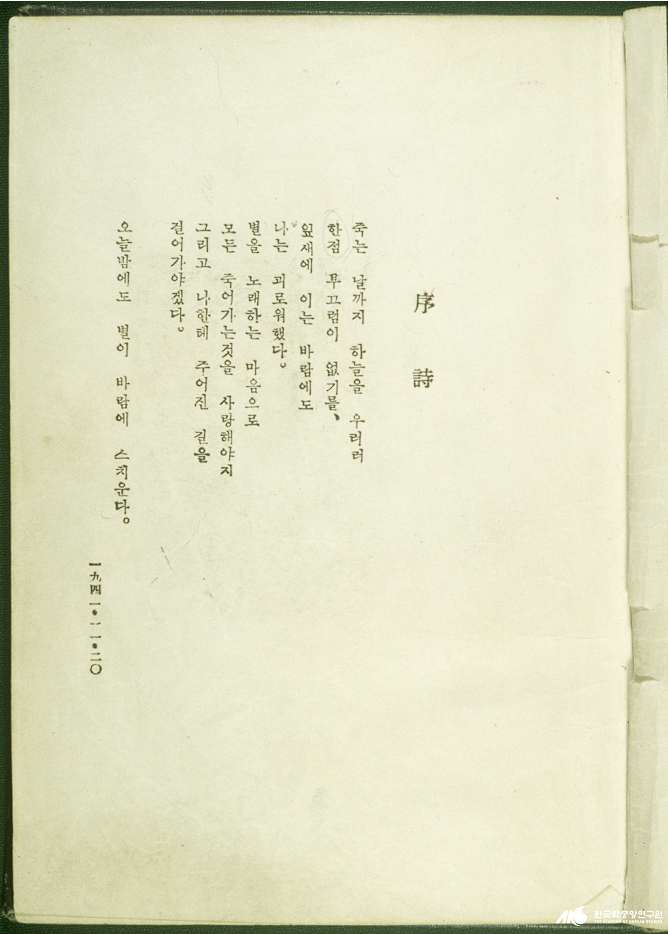 序詩
죽는 날까지 하늘을 우러러
한점 부끄럼이 없기를、
잎새에 이는 바람에도
나는 괴로워했다。
별을 노래하는 마음으로
모든 죽어가는것을 사랑해야지
그리고 나한테 주어진 길을
걸어가야겠다。
오늘밤에도 별이 바람에 스치운다。
一九四一·一一·二〇
한국학중앙연구원
THE ACADEMY OF KOREAN STUDIES